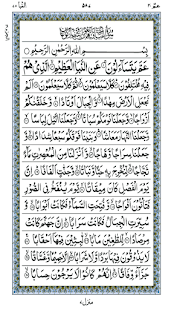 عم ٣٠
النبا ٧٨
بِسْمِ اللهِ الرَّحْمٰنِ الرَّحِيْمِ
عَمَّ يَتَسَآءَلُوْنَ عَنِ النَّبَاِ الْعَظِيْمِ الَّذِيْ هُمْ
فِيْهِ مُخْتَلِفُوْنَ كَلَّا سَيَعْلَمُوْنَ ثُمَّ كَلَّا سَيَعْلَمُوْنَ اَلَمْ
نَجْعَلِ الْاَرْضَ مِهٰدًا وَّالْجِبَالَ اَوْتَادًا وَّخَلَقْنٰكُمْ
اَزْوَاجًا وَّجَعَلْنَا نَوْمَكُمْ سُبَاتًا وَّجَعَلْنَا الَّيْلَ لِبَاسًا
وَّجَعَلْنَا النَّهَارَ مَعَاشًا وَّبَنَيْنَا فَوْقَكُمْ سَبْعًا شِدَادًا
وَّجَعَلْنَا سِرَاجًا وَّهَّاجًا وَّاَنْزَلْنَا مِنَ الْمُعْصِرٰتِ مَآءً
ثَجَّاجًا لِّنُخْرِجَ بِهٖ حَبًّا وَّنَبَاتًا وَّجَنّٰتٍ اَلْفَافًا اِنَّ
يَوْمَ الْفَصْلِ كَانَ مِيْقَاتًا يَّوْمَ يُنْفَخُ فِي الصُّوْرِ
فَتَاْتُوْنَ اَفْوَاجًا وَّفُتِحَتِ السَّمَآءُ فَكَانَتْ اَبْوَابًا
وَّسُيِّرَتِ الْجِبَالُ فَكَانَتْ سَرَابًا اِنَّ جَهَنَّمَ كَانَتْ
مِرْصَادًا لِّلطَّاغِيْنَ مَاٰبًا لّٰبِثِيْنَ فِيْهَآ اَحْقَابًا
لَا يَذُوْقُوْنَ فِيْهَا بَرْدًا وَّلَا شَرَابًا اِلَّا حَمِيْمًا وَّغَسَّاقًا
جَزَآءً وِّفَاقًا اِنَّهُمْ كَانُوْا لَا يَرْجُوْنَ حِسَابًا
منزل٧